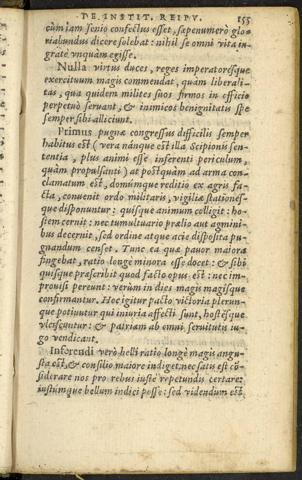 DE INSTIT. REIPV. 155
cùm iam senio confectus esset, sæpenumerò glo-
riabundus dicere solebat: nihil se omni vita in-
gratè vnquàm egisse.
Nulla virtus duces, reges imperatorésque
exercituum magis commendat, quàm liberali-
tas, qua quidem milites suos firmos in officio
perpetuò seruant, & inimicos benignitatis spe
semper sibi alliciunt.
Primus pugnæ congressus difficilis semper
habitus est (vera nánque est illa Scipionis sen-
tentia, plus animi esse inferenti periculum,
quàm propulsanti) at postquàm ad arma con-
clamatum est, domúmque reditio ex agris fa-
cta, conuenit ordo militaris, vigiliæ stationes-
que disponuntur: quisque animum colligit: ho-
stem cernit: nec tumultuario prælio aut agmini-
bus decernit, sed ordine atque acie disposita pu-
gnandum censet. Tunc ea quæ pauor maiora
fingebat, ratio longè minora esse docet: & sibi
quisque præscribit quod facto opus est: nec im-
prouisi pereunt: verùm in dies magis magisque
confirmantur. Hoc igitur pacto victoria plerun-
que potiuntur qui iniuria affecti sunt, hostésque
vlciscuntur: & patriam ab omni seruitutis iu-
go vendicant.
Inferendi verò belli ratio longè magis angu-
sta est, & consilio maiore indiget, nec satis est cō-
siderare nos pro rebus iustè repetundis certare,
iustúmque bellum indici posse: sed videndum est